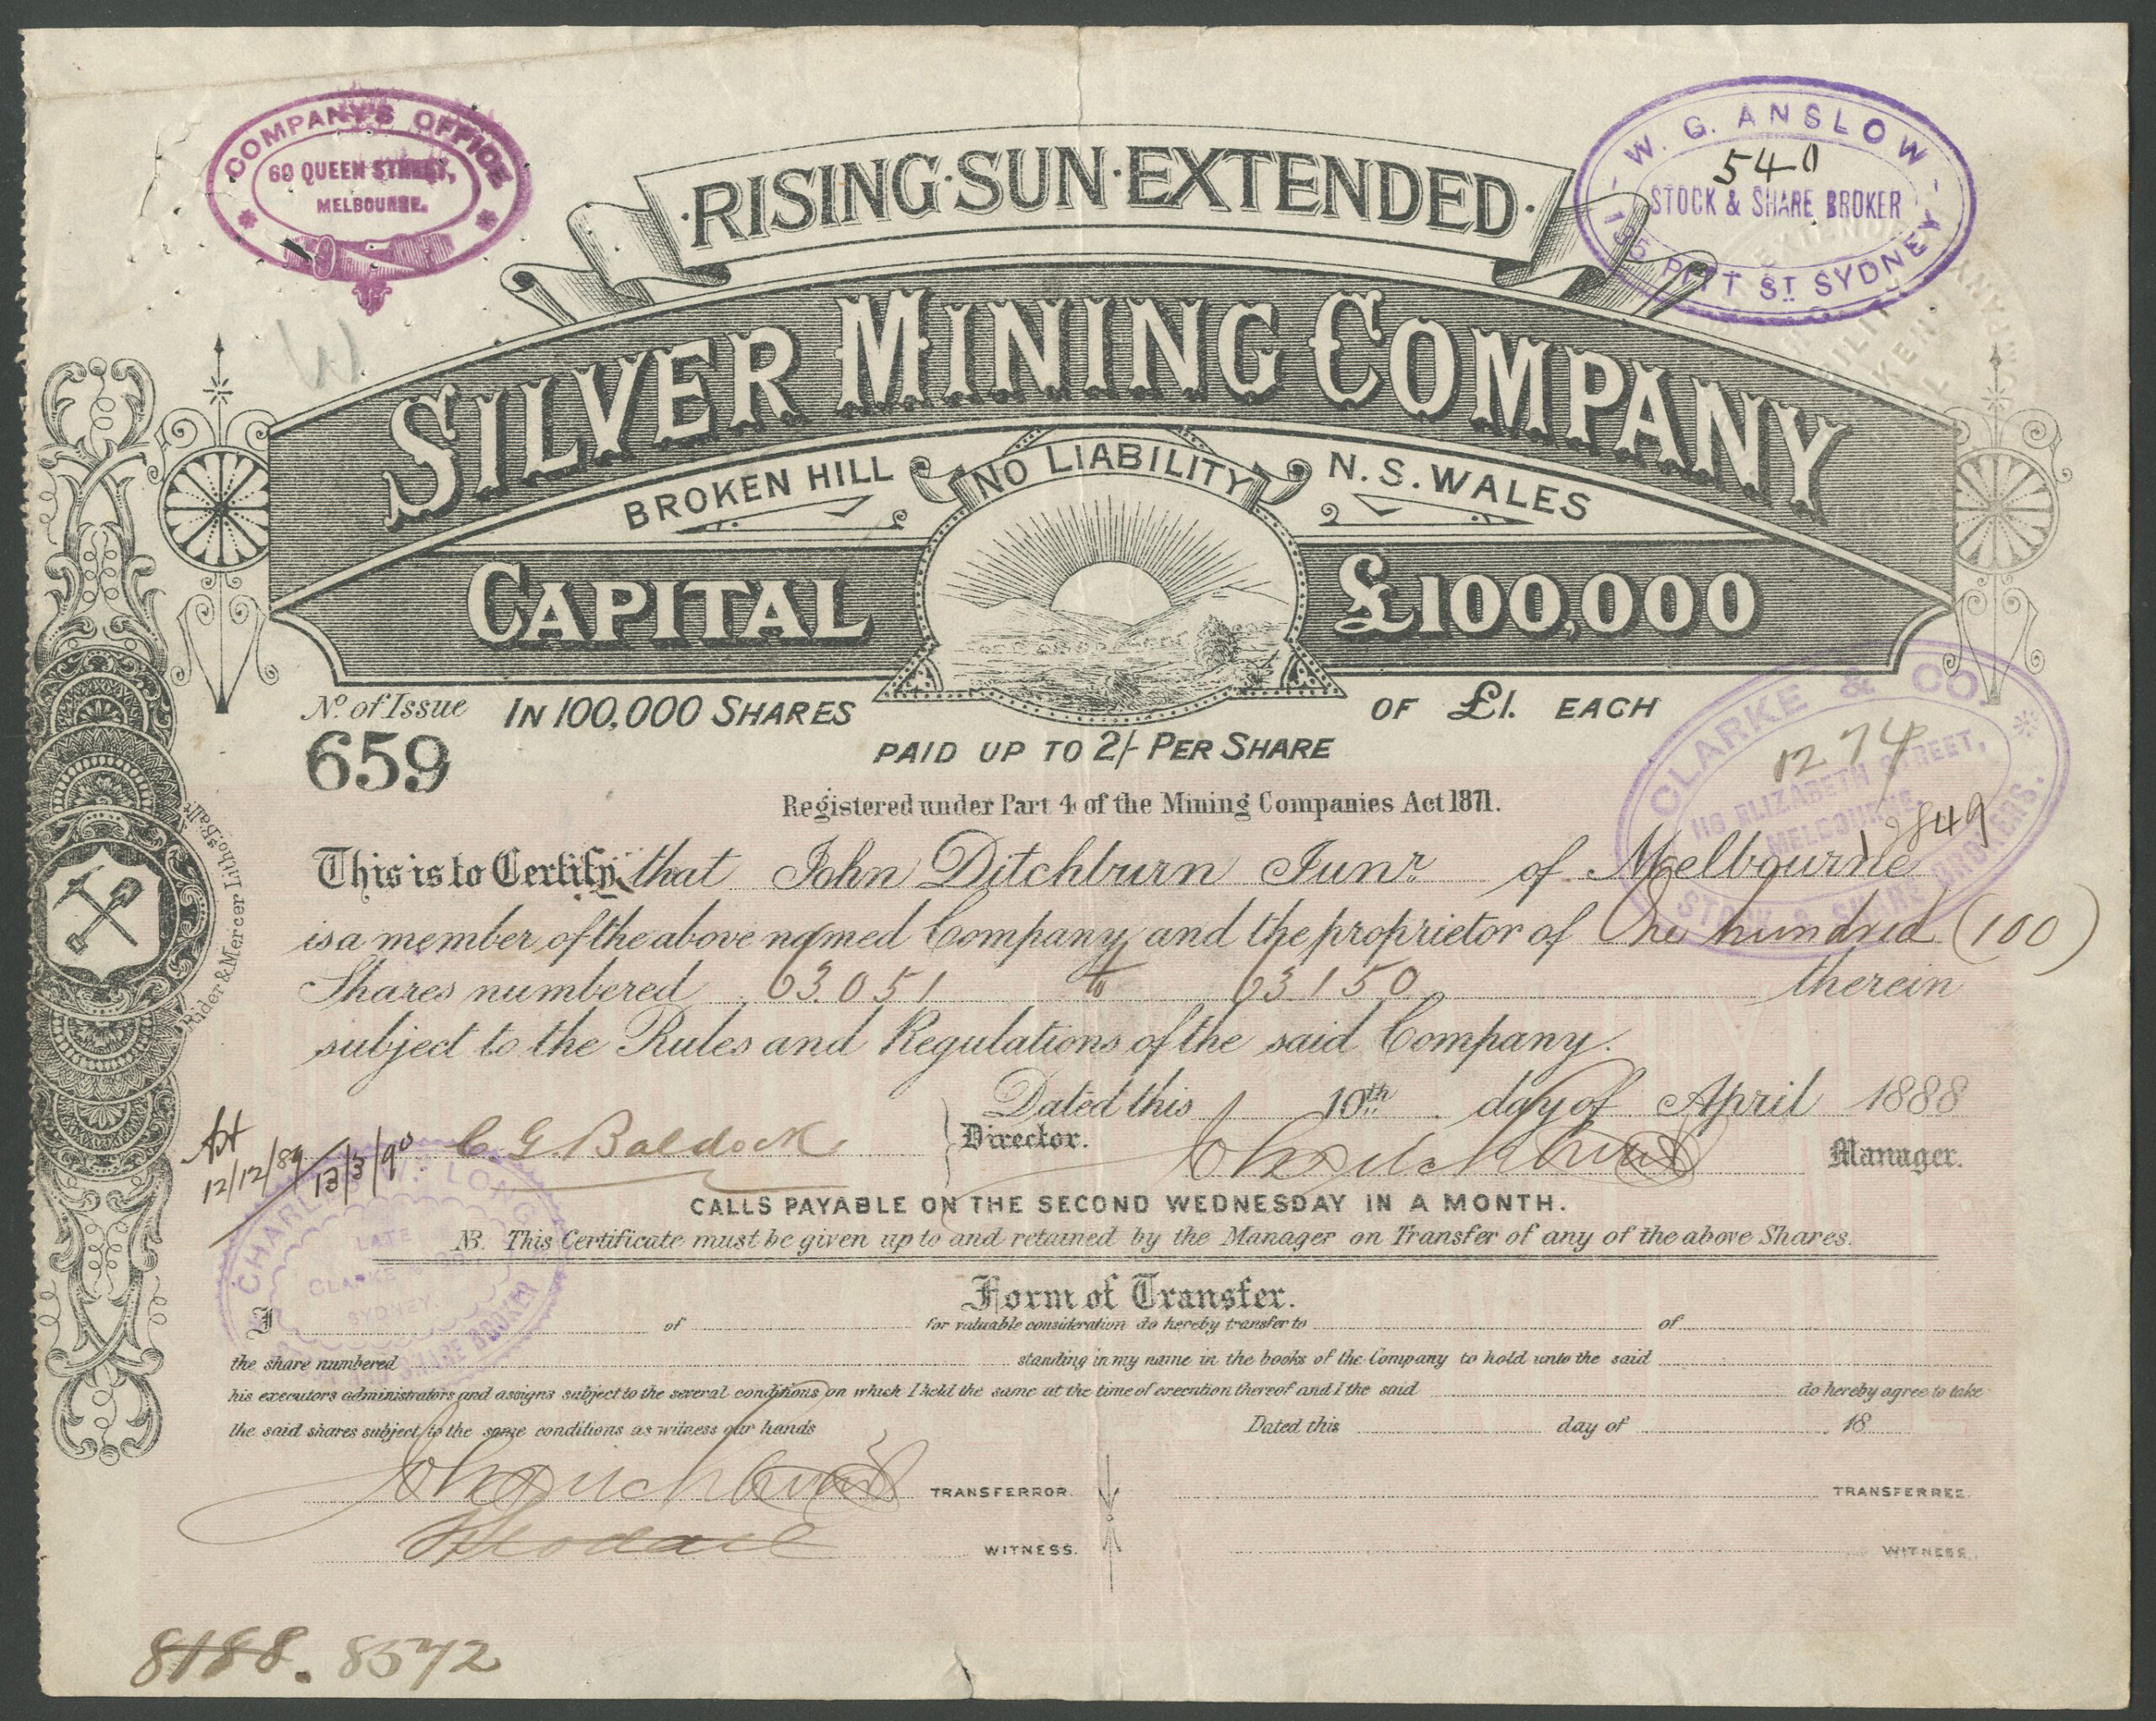 COMPANY'S OFFICE
60 QUEEN STREET,
MELBOURNE.
W. G. ANSLOW
540
STOCK & SHARE BROKER
PITT ST SYDNEY
RISING·SUN·EXTENDED
SILVER MINING COMPANY
BROKEN HILL NO LIABILITY N.S.WALES
CAPITAL £100,000
No. of Issue IN 100,000 SHARES OF £1. EACH
659
PAID UP TO 2/- PER SHARE
CLARKE & CO.
1274
116 ELIZABETH STREET,
MELBOURNE
STOCK & SHARE BROKERS.
Registered under Part 4 of the Mining Companies Act 1871.
This is to Certify that John Ditchburn Junr. of Melbourne
is a member of the above named Company and the proprietor of One hundred (100)
Shares numbered 63.051 to 63.150 therein
subject to the Rules and Regulations of the said Company.
Dated this 10th day of April 1888
C. G. Baldock Director. John Ditchburn Manager.
12/12/89 13/3/90
CALLS PAYABLE ON THE SECOND WEDNESDAY IN A MONTH.
NB. This Certificate must be given up to and retained by the Manager on Transfer of any of the above Shares.
CHARLES LONG
LATE
CLARKE & CO.
SYDNEY
SHARE BROKER
Form of Transfer.
I of for valuable consideration do hereby transfer to of
the share numbered standing in my name in the books of the Company to hold unto the said
his executors administrators and assigns subject to the several conditions on which I held the same at the time of execution thereof and I the said do hereby agree to take
the said shares subject to the same conditions as witness our hands Dated this day of 18
John Ditchburn TRANSFERROR. TRANSFERREE.
WITNESS. WITNESS.
8188. 8572
Rider & Mercer Lithos. Ballt.